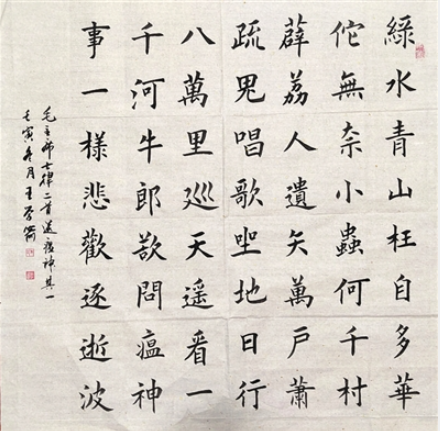 綠水青山枉自多華
佗無奈小蟲何千村
薜荔人遺矢萬戶蕭
疏鬼唱歌坐地日行
八萬里巡天遙看一
千河牛郎欲問瘟神
事一樣悲歡逐逝波
毛主席七律二首送瘟神其一
壬寅冬月王学